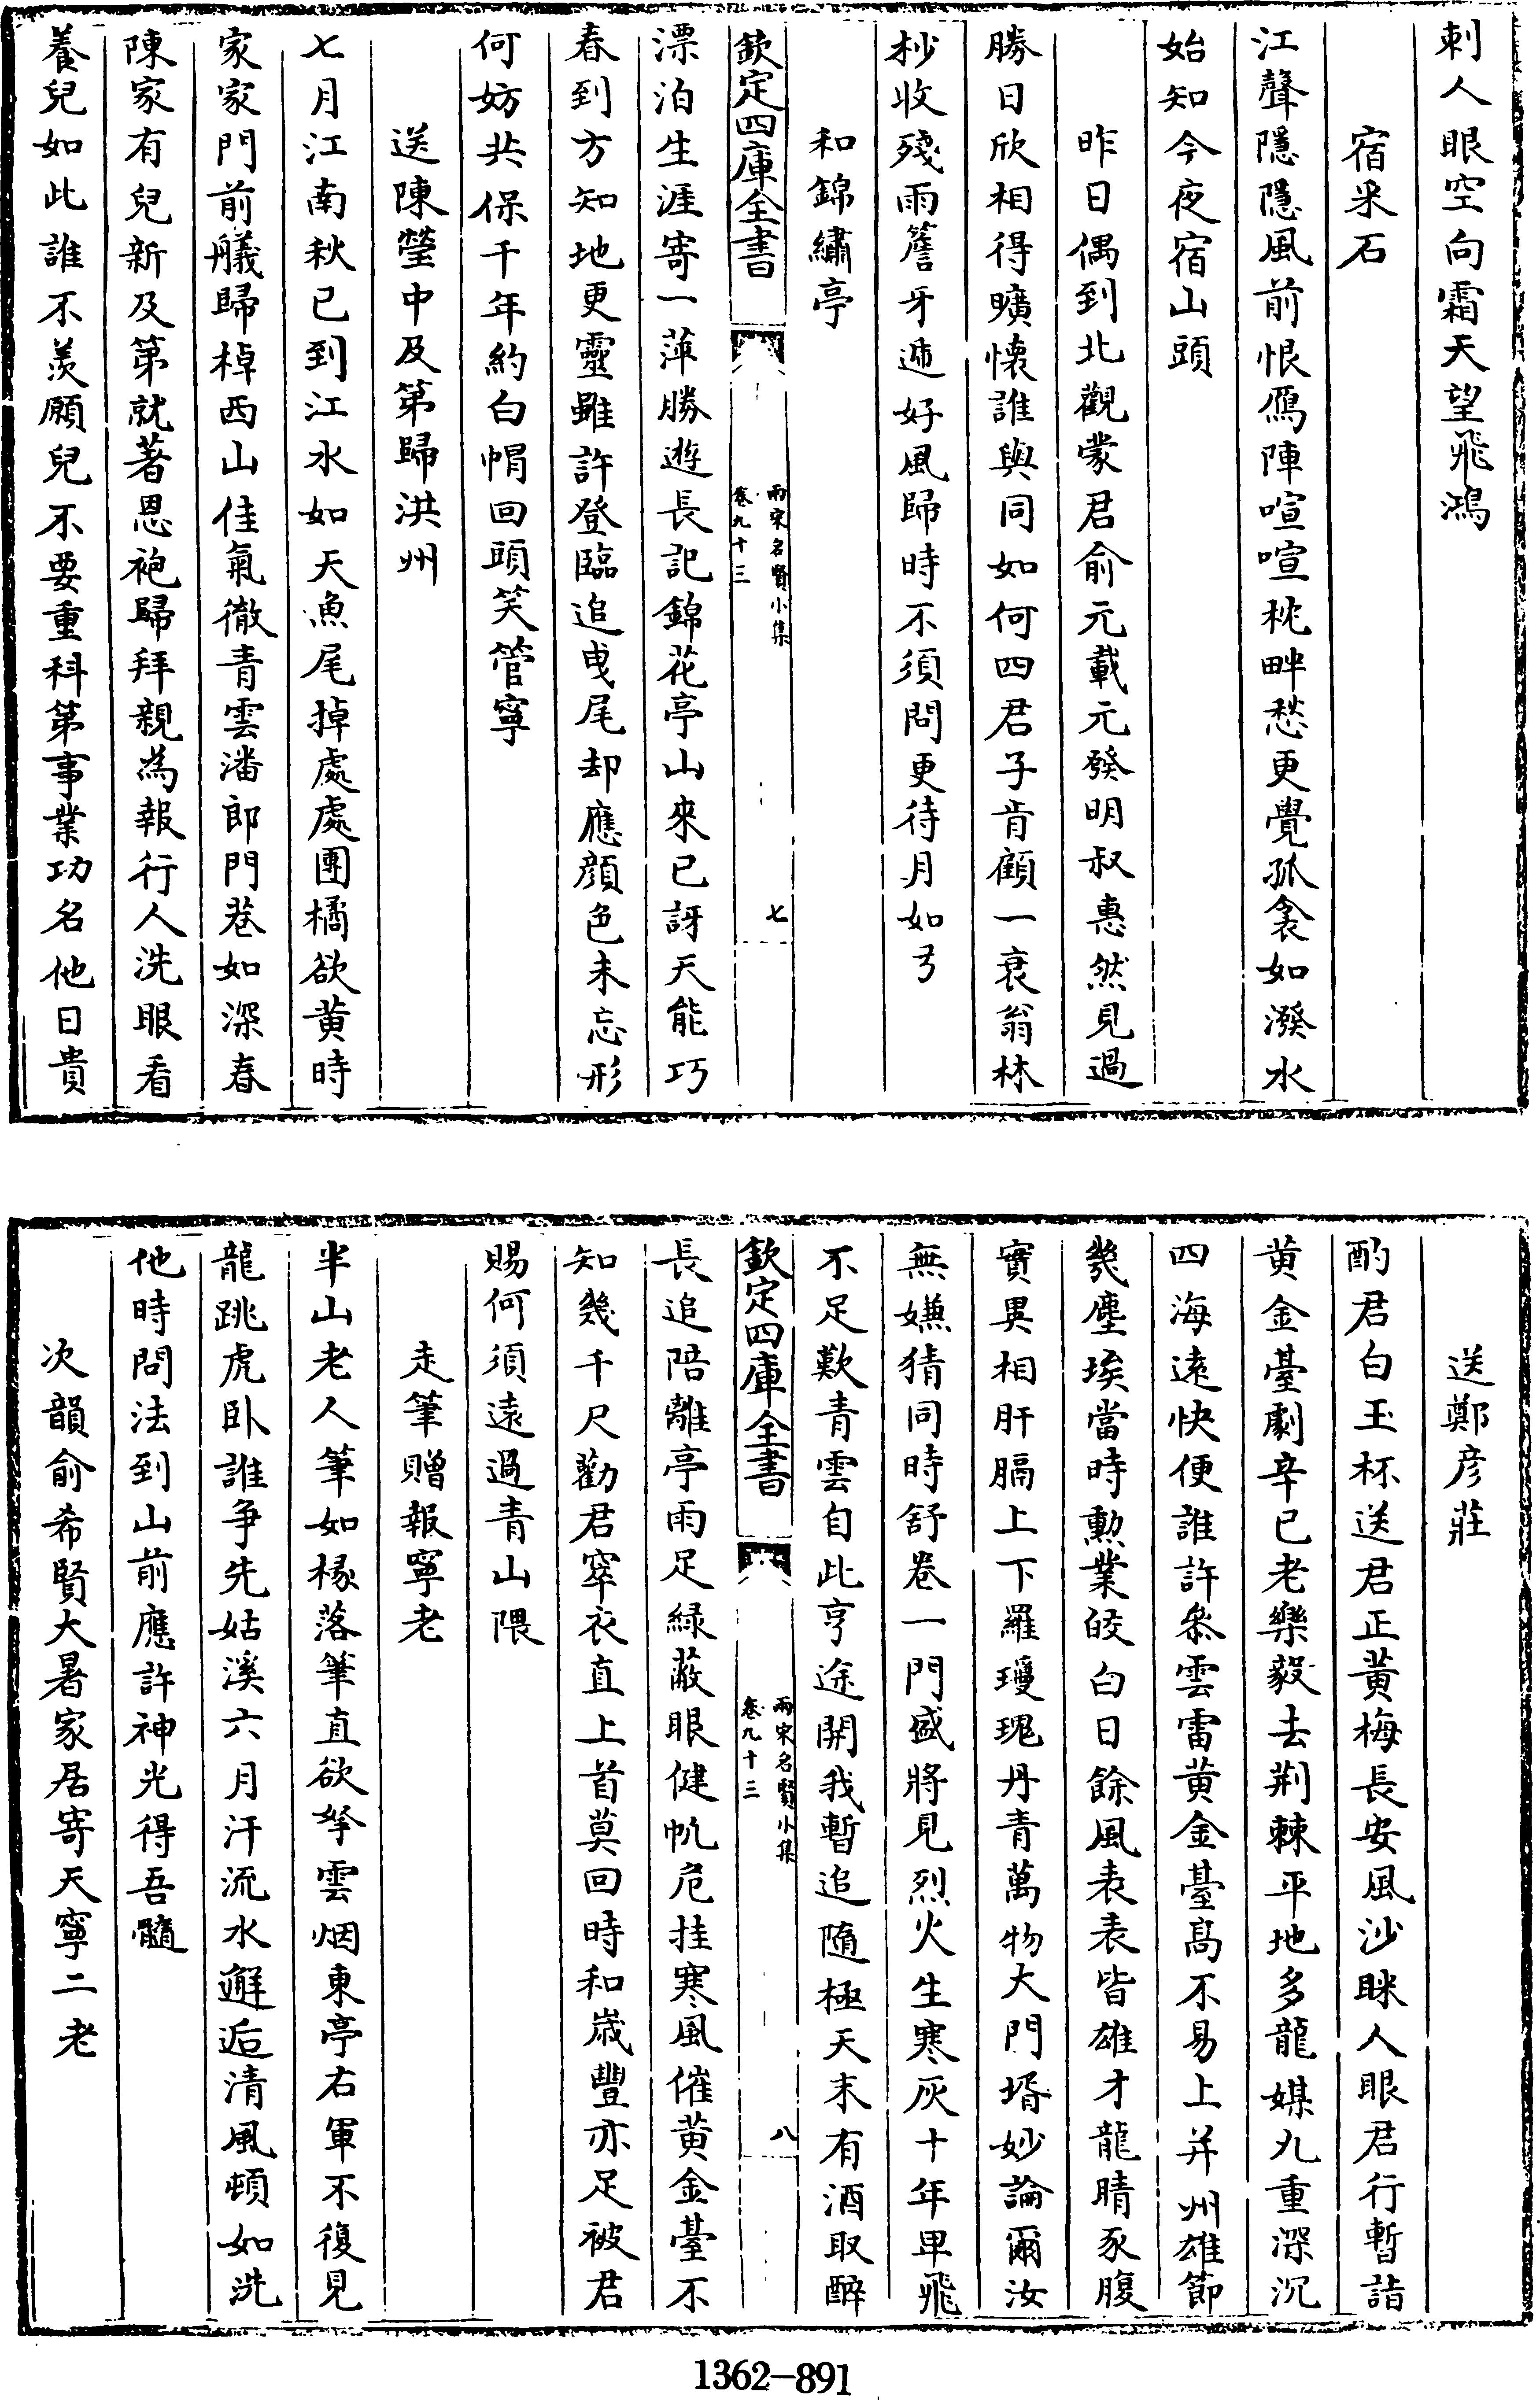 刺人眼空向霜天望飛鴻
宿采石
江聲隱隱風前恨鴈陣喧喧枕畔愁更覺孤衾如潑水
始知今夜宿山頭
昨日偶到北觀蒙君俞元載元發明叔惠然見過
勝日欣相得曠懷誰與同如何四君子肯顧一衰翁林
杪收殘雨簷牙遞好風歸時不須問更待月如弓
和錦繡亭
欽定四庫全書
兩宋名賢小集
卷九十三
七
漂泊生涯寄一萍勝遊長記錦花亭山來已訝天能巧
春到方知地更靈雖許登臨追曳尾却應顏色未忘形
何妨共保千年約白帽回頭笑管寧
送陳瑩中及第歸洪州
七月江南秋已到江水如天魚尾掉處處團橘欲黃時
家家門前艤歸棹西山佳氣徹青雲潘郎門巷如深春
陳家有兒新及第就著恩袍歸拜親為報行人洗眼看
養兒如此誰不羨願兒不要重科第事業功名他日貴
送鄭彦莊
酌君白玉杯送君正黃梅長安風沙眯人眼君行暫詣
黃金臺劇辛已老樂毅去荆棘平地多龍媒九重深沉
四海遠快便誰許叅雲雷黃金臺髙不易上并州雄節
幾塵埃當時勲業皎白日餘風表表皆雄才龍睛豕腹
實異相肝膈上下羅瓊瑰丹青萬物大門壻妙論爾汝
無嫌猜同時舒卷一門盛將見烈火生寒灰十年卑飛
不足歎青雲自此亨途開我暫追隨極天末有酒取醉
欽定四庫全書
兩宋名賢小集
卷九十三
八
長追陪離亭雨足綠蔽眼健帆危挂寒風催黃金臺不
知幾千尺勸君窣衣直上首莫回時和歲豐亦足被君
賜何須遠過青山隈
走筆贈報寧老
半山老人筆如椽落筆直欲拏雲烟東亭右軍不復見
龍跳虎卧誰爭先姑溪六月汗流水邂逅清風頓如洗
他時問法到山前應許神光得吾髓
次韻俞希賢大暑家居寄天寧二老
1362-891